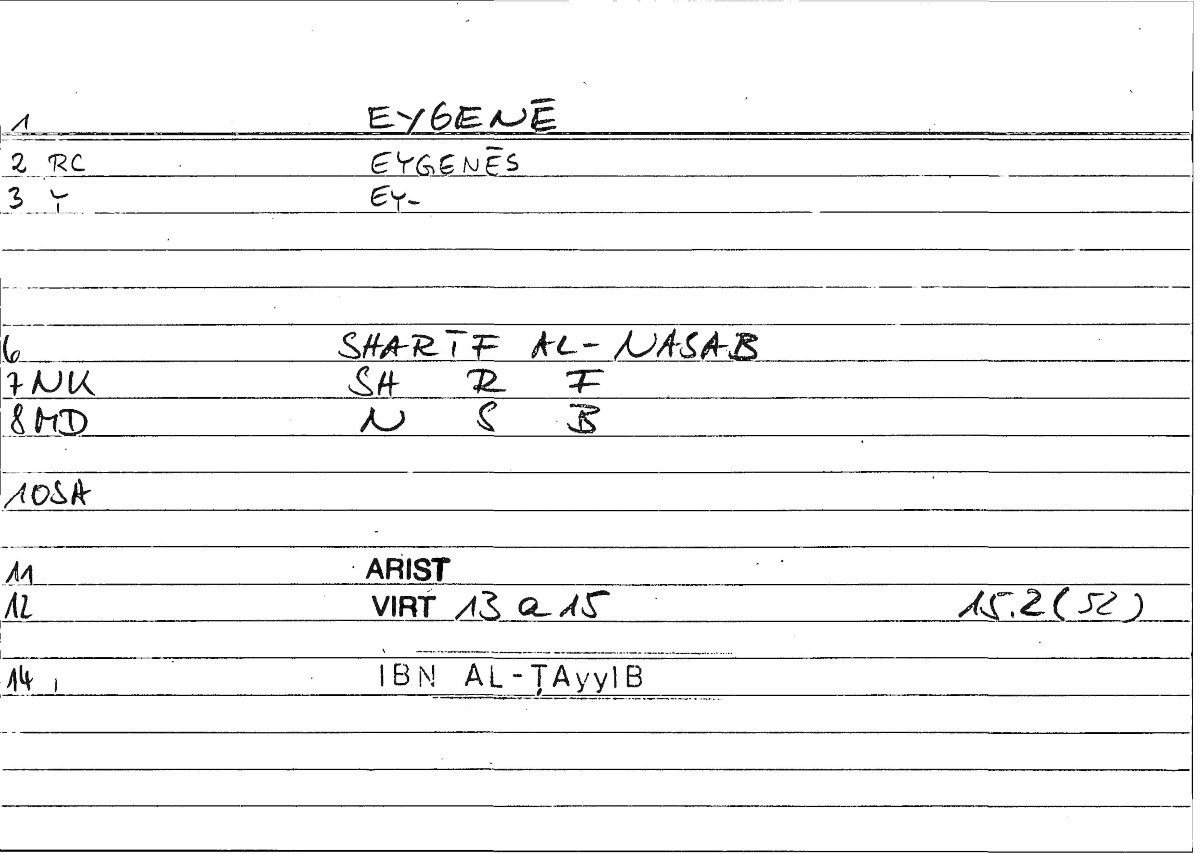 1 EYGENĒ
2 RC EYGENĒS
3 Y EY-
6 SHARĪF AL-NASAB
7 NK SH R F
8 MD N S B
10 SA
11 ARIST
12 VIRT 13 a 15 15.2 (52)
14 I IBN AL-ṬAyyIB